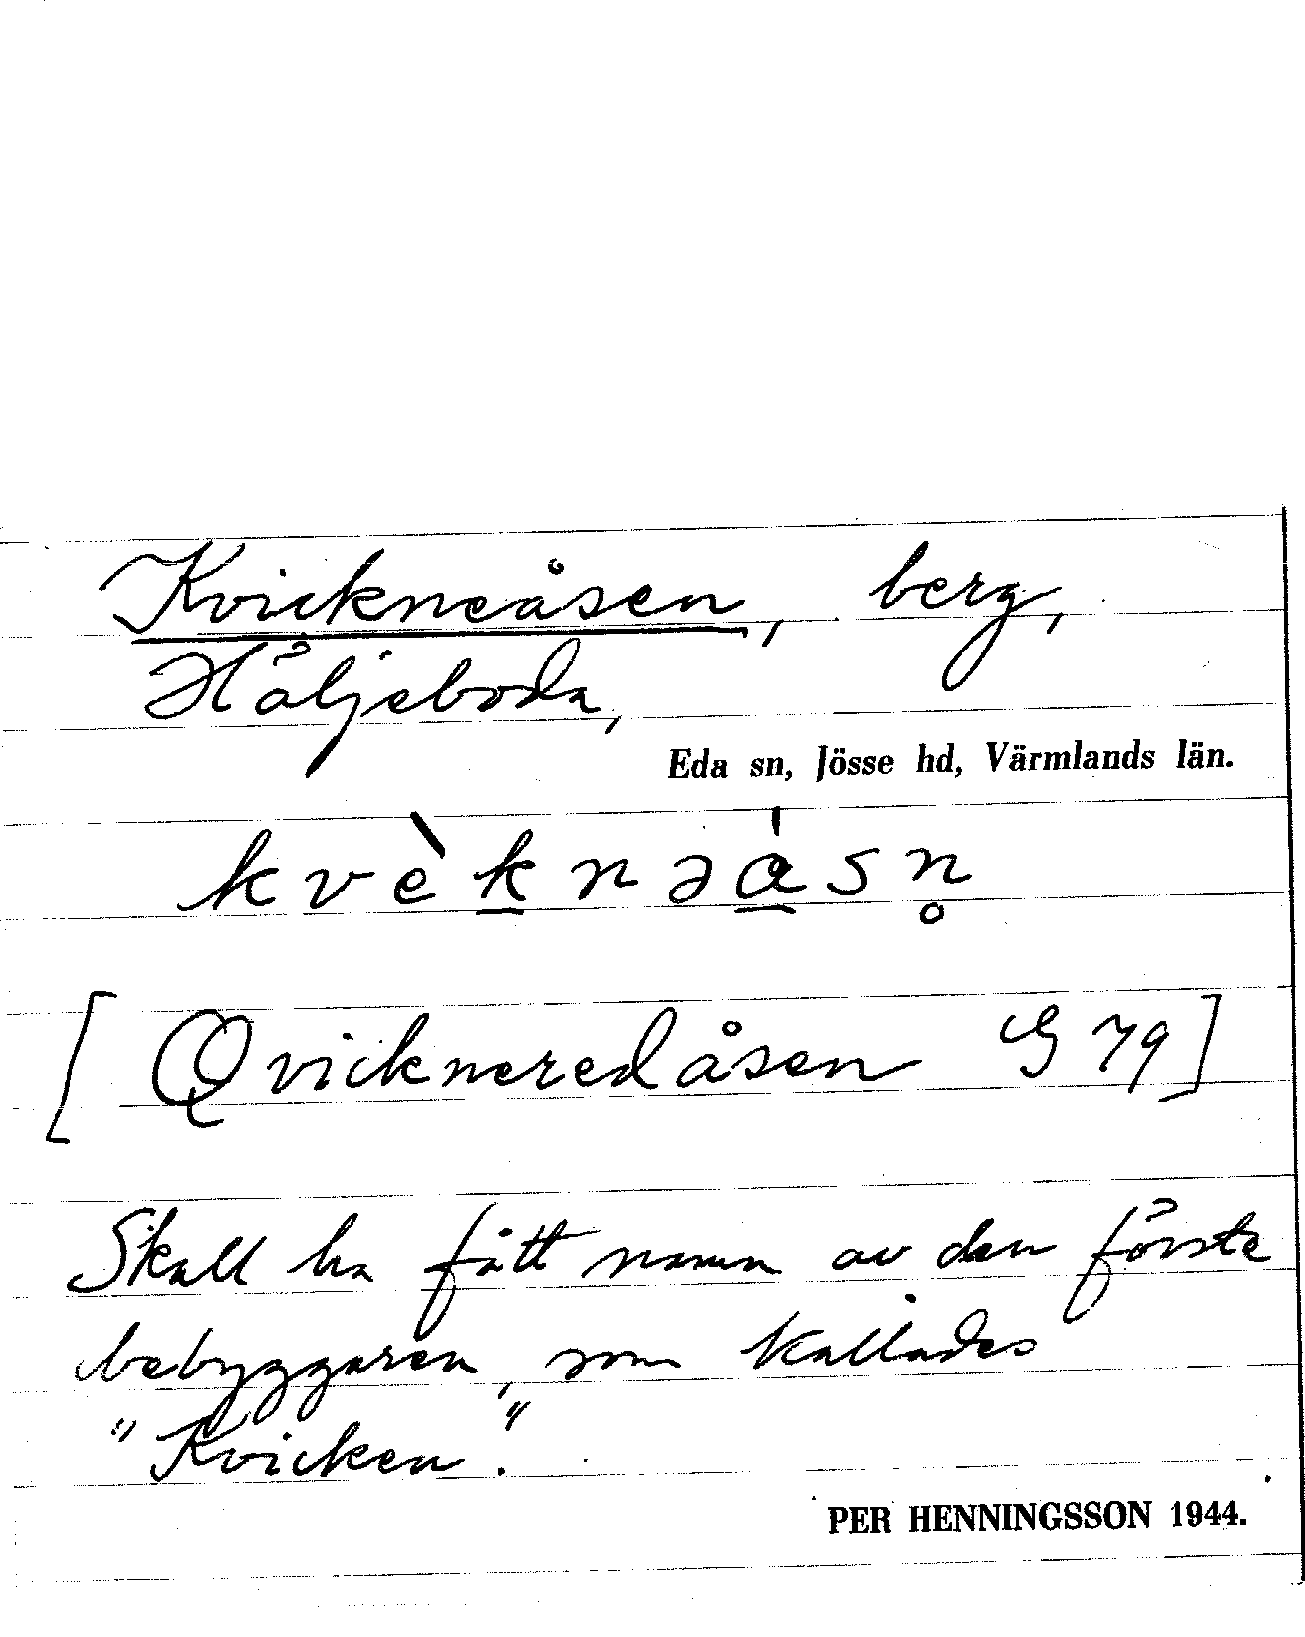 Kvickneåsen, berg,
Håljeboda,
Eda sn, Jösse hd, Värmlands län.
kvèknəása̱sn̥
[Qvickneredåsen G 79]
Skall ha fått namn av den förste
bebyggaren, som kallades
"Kvicken".
PER HENNINGSSON 1944.